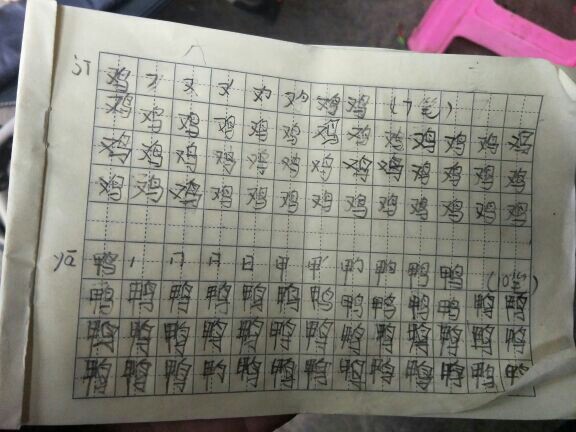 jī 鸡 フ 又 鸡 鸡 (7笔)
鸡 鸡 鸡 鸡 鸡 鸡 鸡 鸡 鸡 鸡 鸡 鸡 鸡
鸡 鸡 鸡 鸡 鸡 鸡 鸡 鸡 鸡 鸡 鸡 鸡 鸡
鸡 鸡 鸡 鸡 鸡 鸡 鸡 鸡 鸡 鸡 鸡 鸡 鸡
yā 鸭 丨 口 日 甲 鸭 鸭 (10笔)
鸭 鸭 鸭 鸭 鸭 鸭 鸭 鸭 鸭 鸭 鸭 鸭 鸭
鸭 鸭 鸭 鸭 鸭 鸭 鸭 鸭 鸭 鸭 鸭 鸭 鸭
鸭 鸭 鸭 鸭 鸭 鸭 鸭 鸭 鸭 鸭 鸭 鸭 鸭